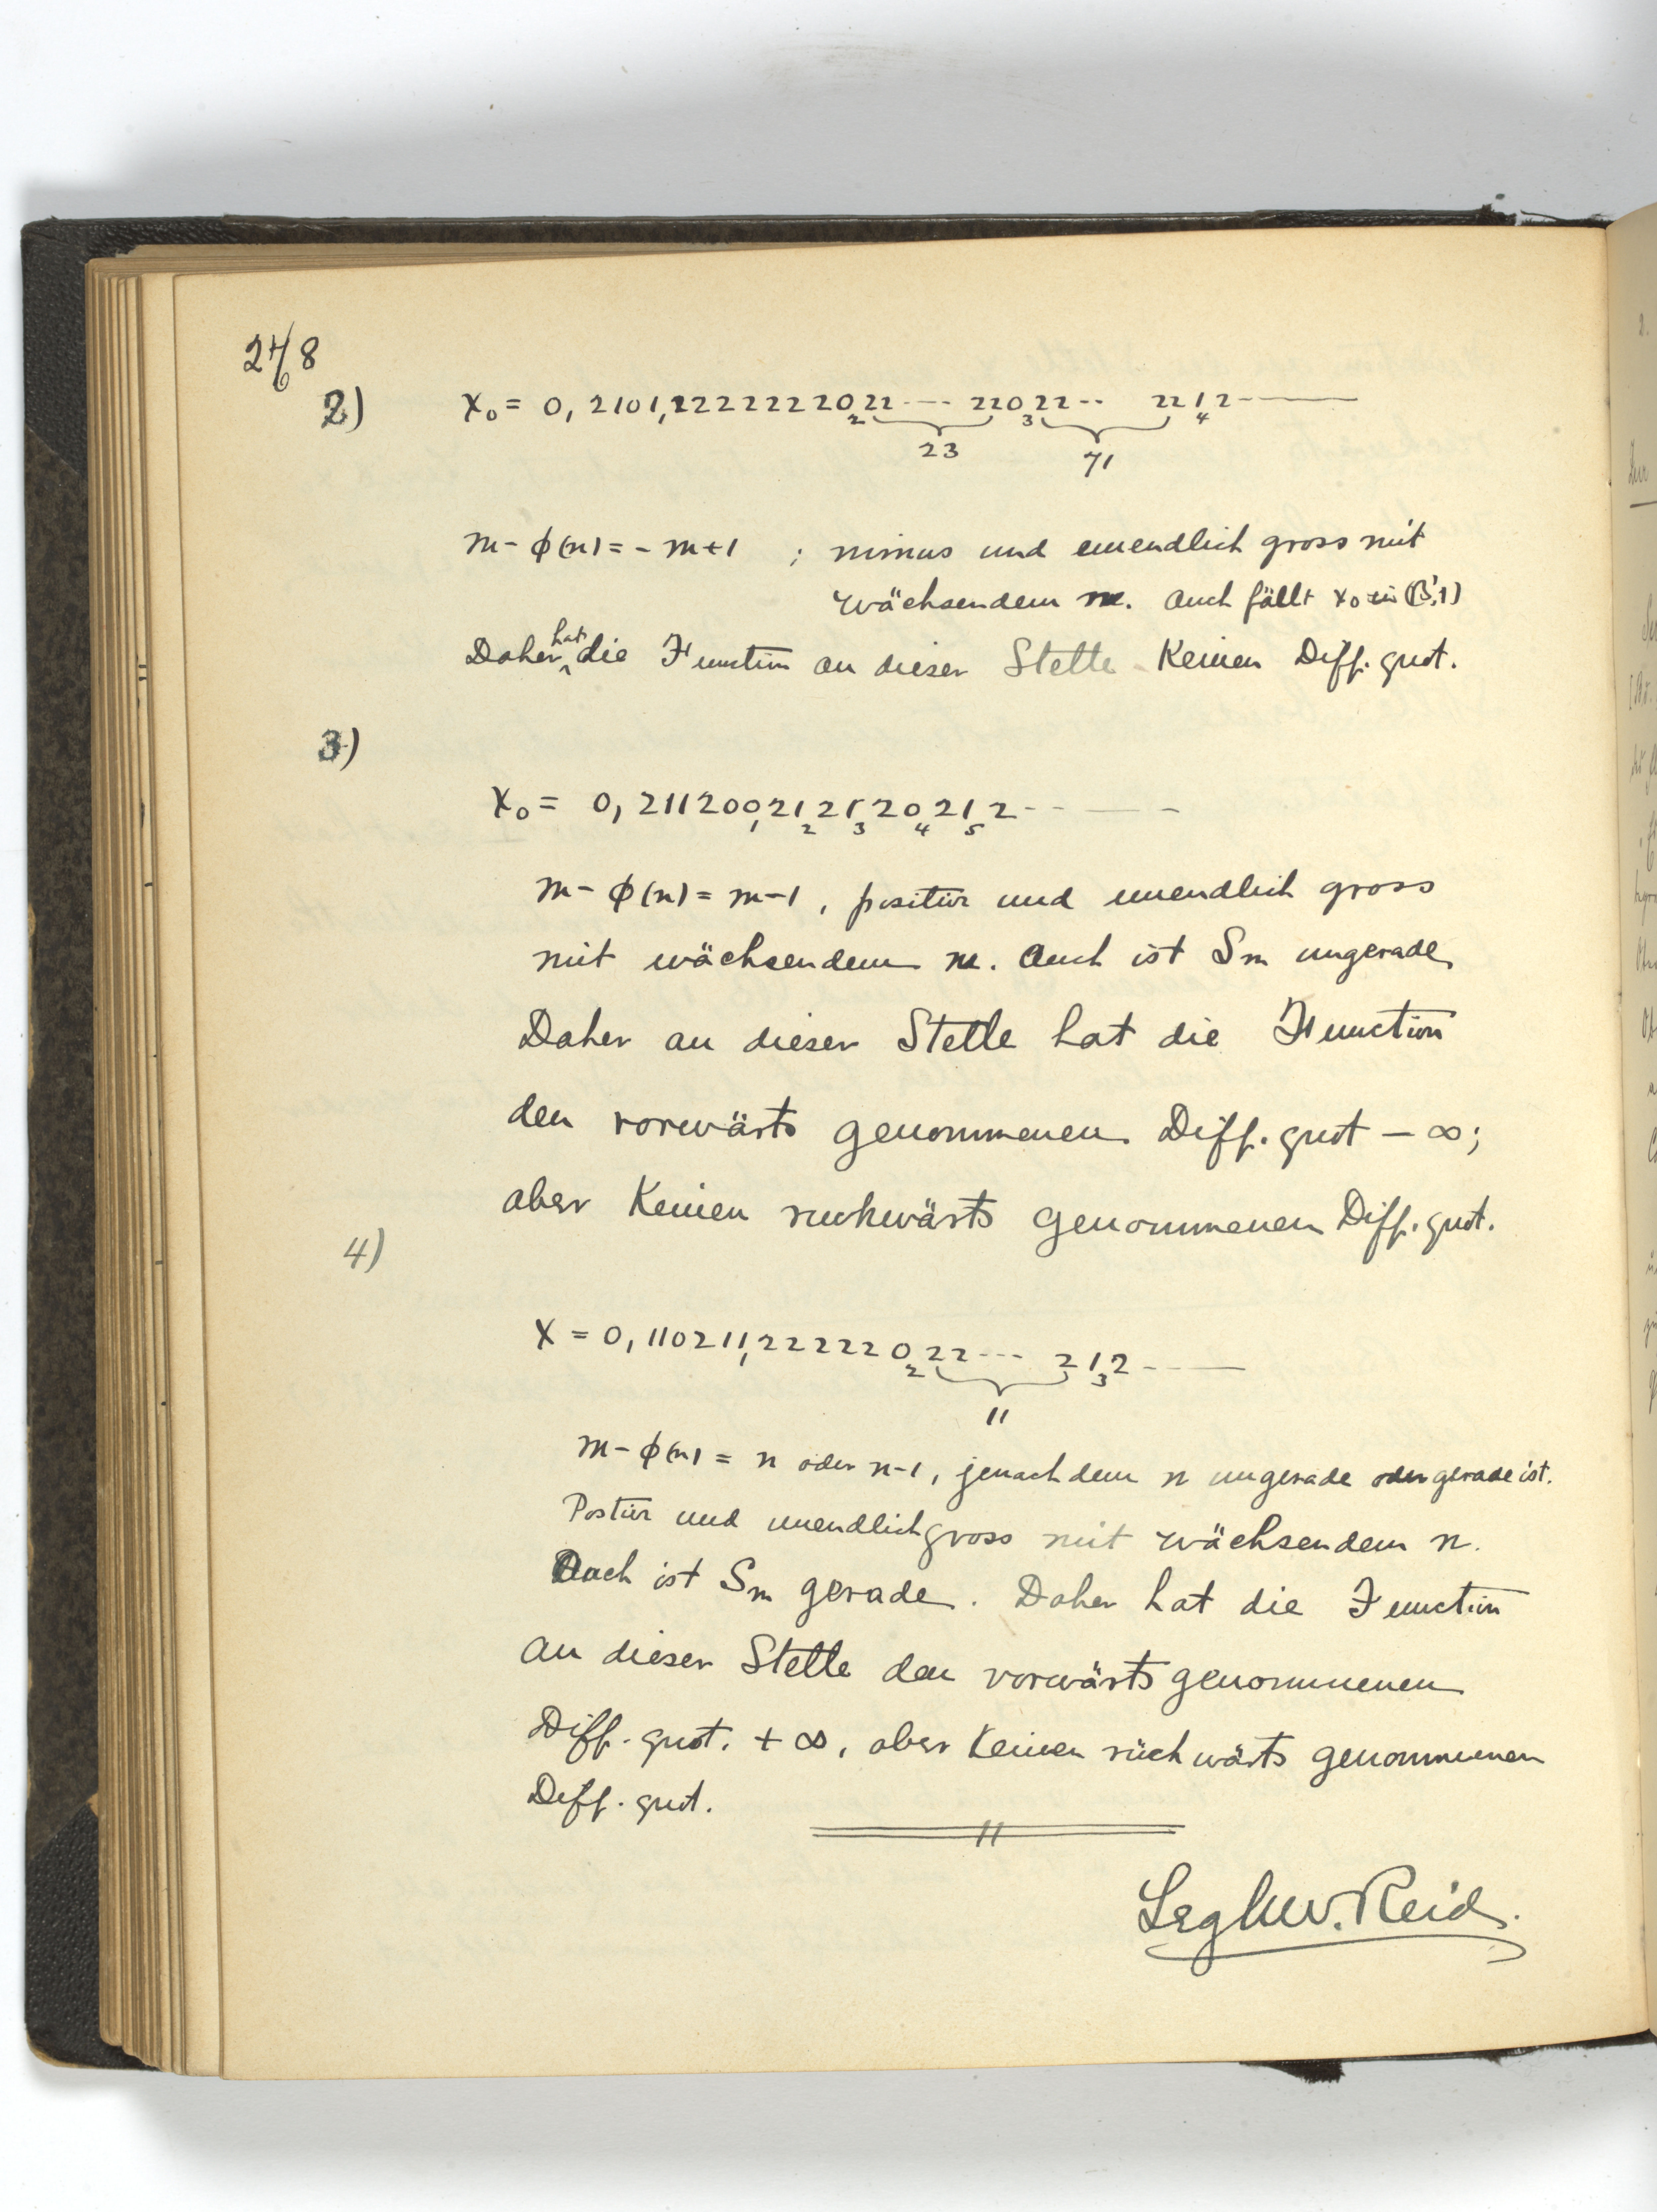 248
2) x₀ = 0, 2101,₁22222220₂22 ---- 220₃22-- 221₄2 ------
23 71
m - ϕ(n) = - m+1 ; minus und unendlich gross mit
wächsendem m. Auch fällt x₀ in (B',1)
Daher hat die Function an dieser Stelle keinen Diff. quot.
3)
x₀ = 0, 211200₁21₂21₃20₄21₅2 - - —— -
m - ϕ(n) = m-1, positiv und unendlich gross
mit wächsendem m. Auch ist Sm ungerade,
Daher an dieser Stelle hat die Function
den vorwärts genommenen Diff. quot - ∞;
aber keinen ruckwärts genommenen Diff. quot.
4)
x = 0, 110211₁222220₂22 --- 21₃2 - ——
11
m - ϕ(n) = n oder n-1, jenachdem n ungerade oder gerade ist.
Postiv und unendlich gross mit wächsendem n.
Auch ist Sm gerade. Daher hat die Function
an dieser Stelle den vorwärts genommenen
Diff. quot. + ∞, aber keinen rückwärts genommenen
Diff. quot.
Legh W. Reid.